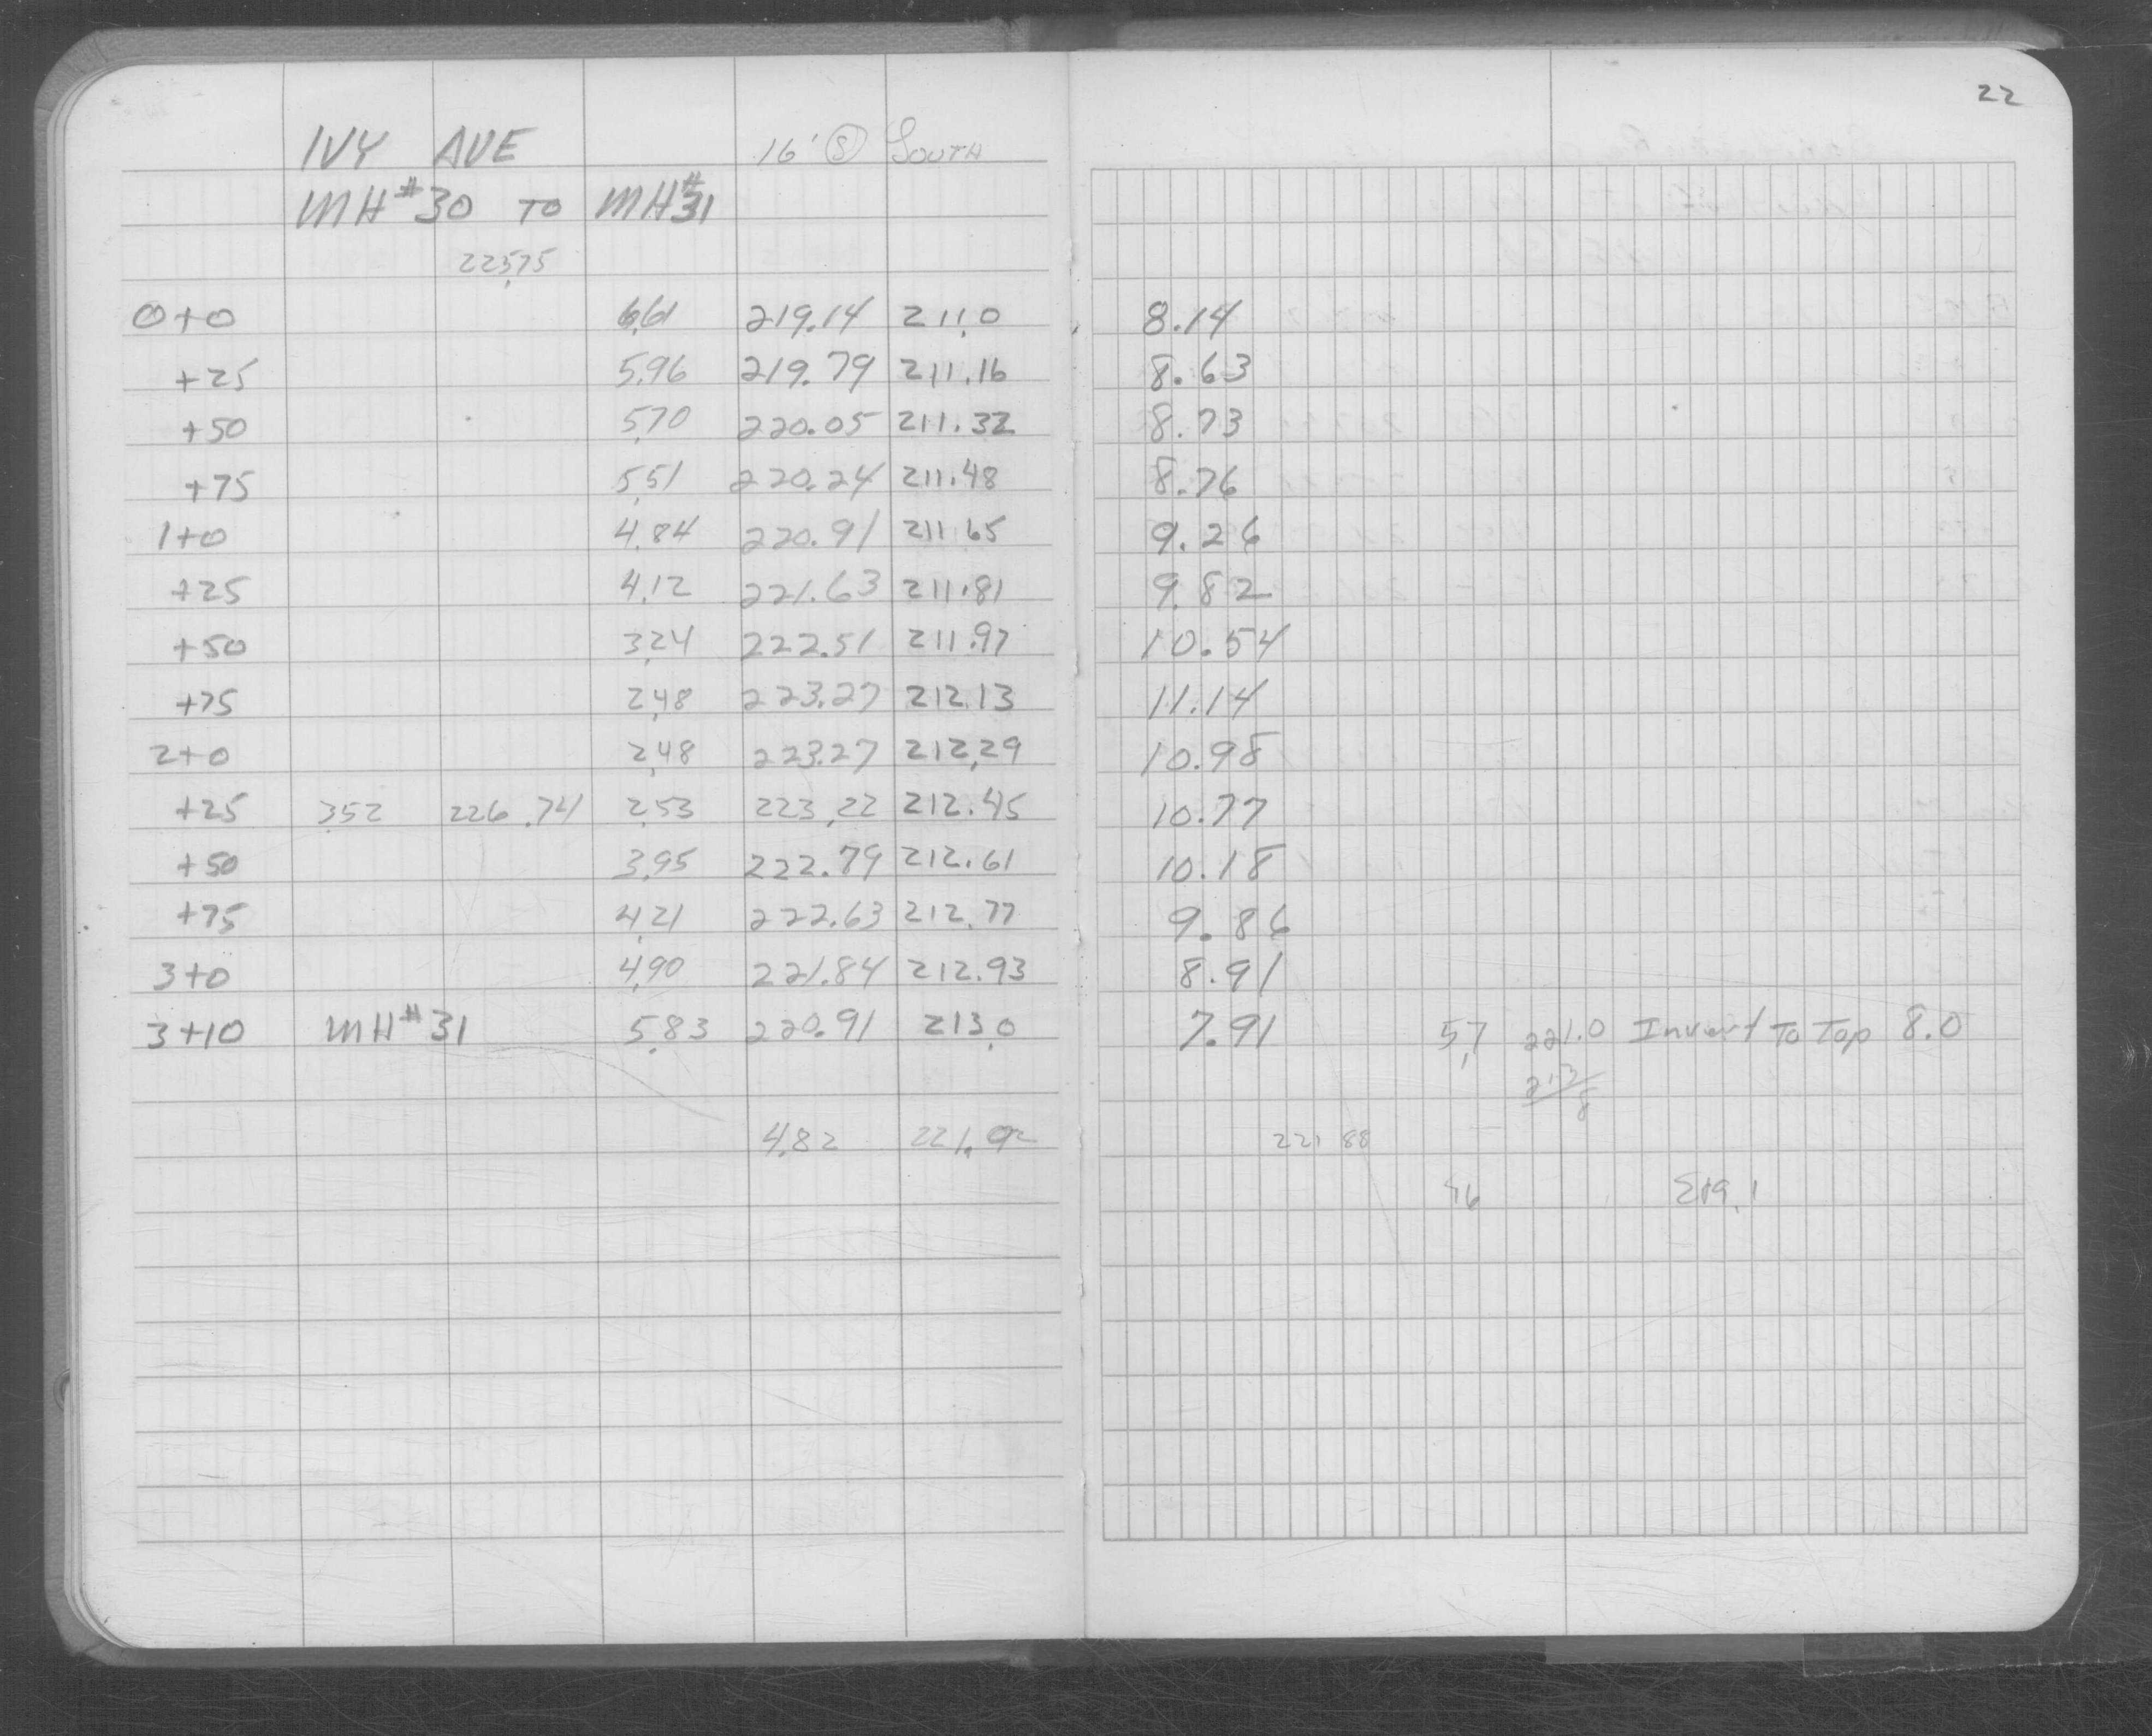 22
IVY AVE 16' Ⓢ SOUTH
MH#30 TO MH#31
225.75
0+0 6.61 219.14 211.0 8.14
+25 5.96 219.79 211.16 8.63
+50 5.70 220.05 211.32 8.73
+75 5.51 220.24 211.48 8.76
1+0 4.84 220.91 211.65 9.26
+25 4.12 221.63 211.81 9.82
+50 3.24 222.51 211.97 10.54
+75 2.48 223.27 212.13 11.14
2+0 2.48 223.27 212.29 10.98
+25 3.52 226.74 2.53 223.22 212.45 10.77
+50 3.95 222.79 212.61 10.18
+75 4.21 222.63 212.77 9.86
3+0 4.90 221.84 212.93 8.91
3+10 MH#31 5.83 220.91 213.0 7.91 5.7 221.0 Invert To Top 8.0
213
8
4.82 221.92 221 88
219.1